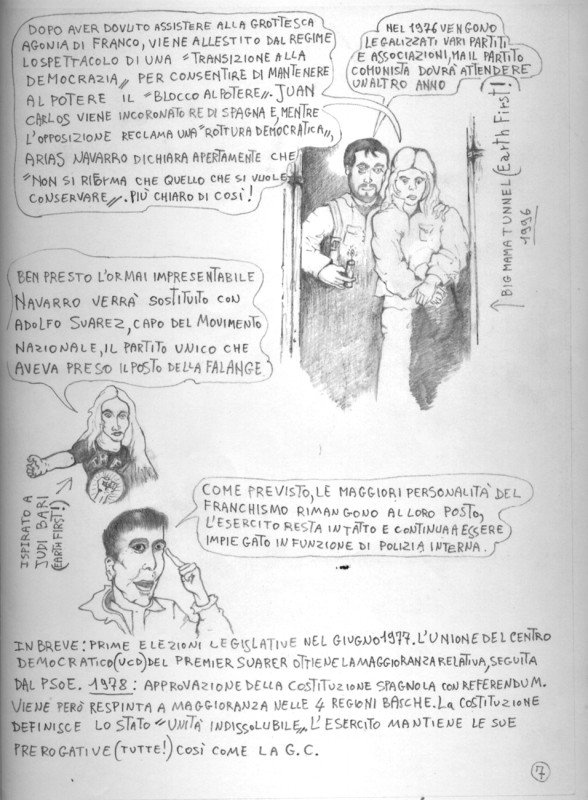 DOPO AVER DOVUTO ASSISTERE ALLA GROTTESCA
AGONIA DI FRANCO, VIENE ALLESTITO DAL REGIME
LO SPETTACOLO DI UNA "TRANSIZIONE ALLA
DEMOCRAZIA" PER CONSENTIRE DI MANTENERE
AL POTERE IL "BLOCCO AL POTERE". JUAN
CARLOS VIENE INCORONATO RE DI SPAGNA E, MENTRE
L'OPPOSIZIONE RECLAMA UNA "ROTTURA DEMOCRATICA",
ARIAS NAVARRO DICHIARA APERTAMENTE CHE
"NON SI RIFORMA CHE QUELLO CHE SI VUOLE
CONSERVARE". PIÙ CHIARO DI COSÌ!
NEL 1976 VENGONO
LEGALIZZATI VARI PARTITI
E ASSOCIAZIONI, MA IL PARTITO
COMUNISTA DOVRÀ ATTENDERE
UN ALTRO ANNO
BIG MAMA TUNNEL (Earth First!)
1996
BEN PRESTO L'ORMAI IMPRESENTABILE
NAVARRO VERRÀ SOSTITUITO CON
ADOLFO SUAREZ, CAPO DEL MOVIMENTO
NAZIONALE, IL PARTITO UNICO CHE
AVEVA PRESO IL POSTO DELLA FALANGE
ISPIRATO A
JUDI BARI
(EARTH FIRST!)
COME PREVISTO, LE MAGGIORI PERSONALITÀ DEL
FRANCHISMO RIMANGONO AL LORO POSTO,
L'ESERCITO RESTA INTATTO E CONTINUA A ESSERE
IMPIEGATO IN FUNZIONE DI POLIZIA INTERNA.
IN BREVE: PRIME ELEZIONI LEGISLATIVE NEL GIUGNO 1977. L'UNIONE DEL CENTRO
DEMOCRATICO (UCD) DEL PREMIER SUARER OTTIENE LA MAGGIORANZA RELATIVA, SEGUITA
DAL PSOE. 1978: APPROVAZIONE DELLA COSTITUZIONE SPAGNOLA CON REFERENDUM.
VIENE PERÒ RESPINTA A MAGGIORANZA NELLE 4 REGIONI BASCHE. LA COSTITUZIONE
DEFINISCE LO STATO "UNITÀ INDISSOLUBILE". L'ESERCITO MANTIENE LE SUE
PREROGATIVE (TUTTE!) COSÌ COME LA G.C.
7